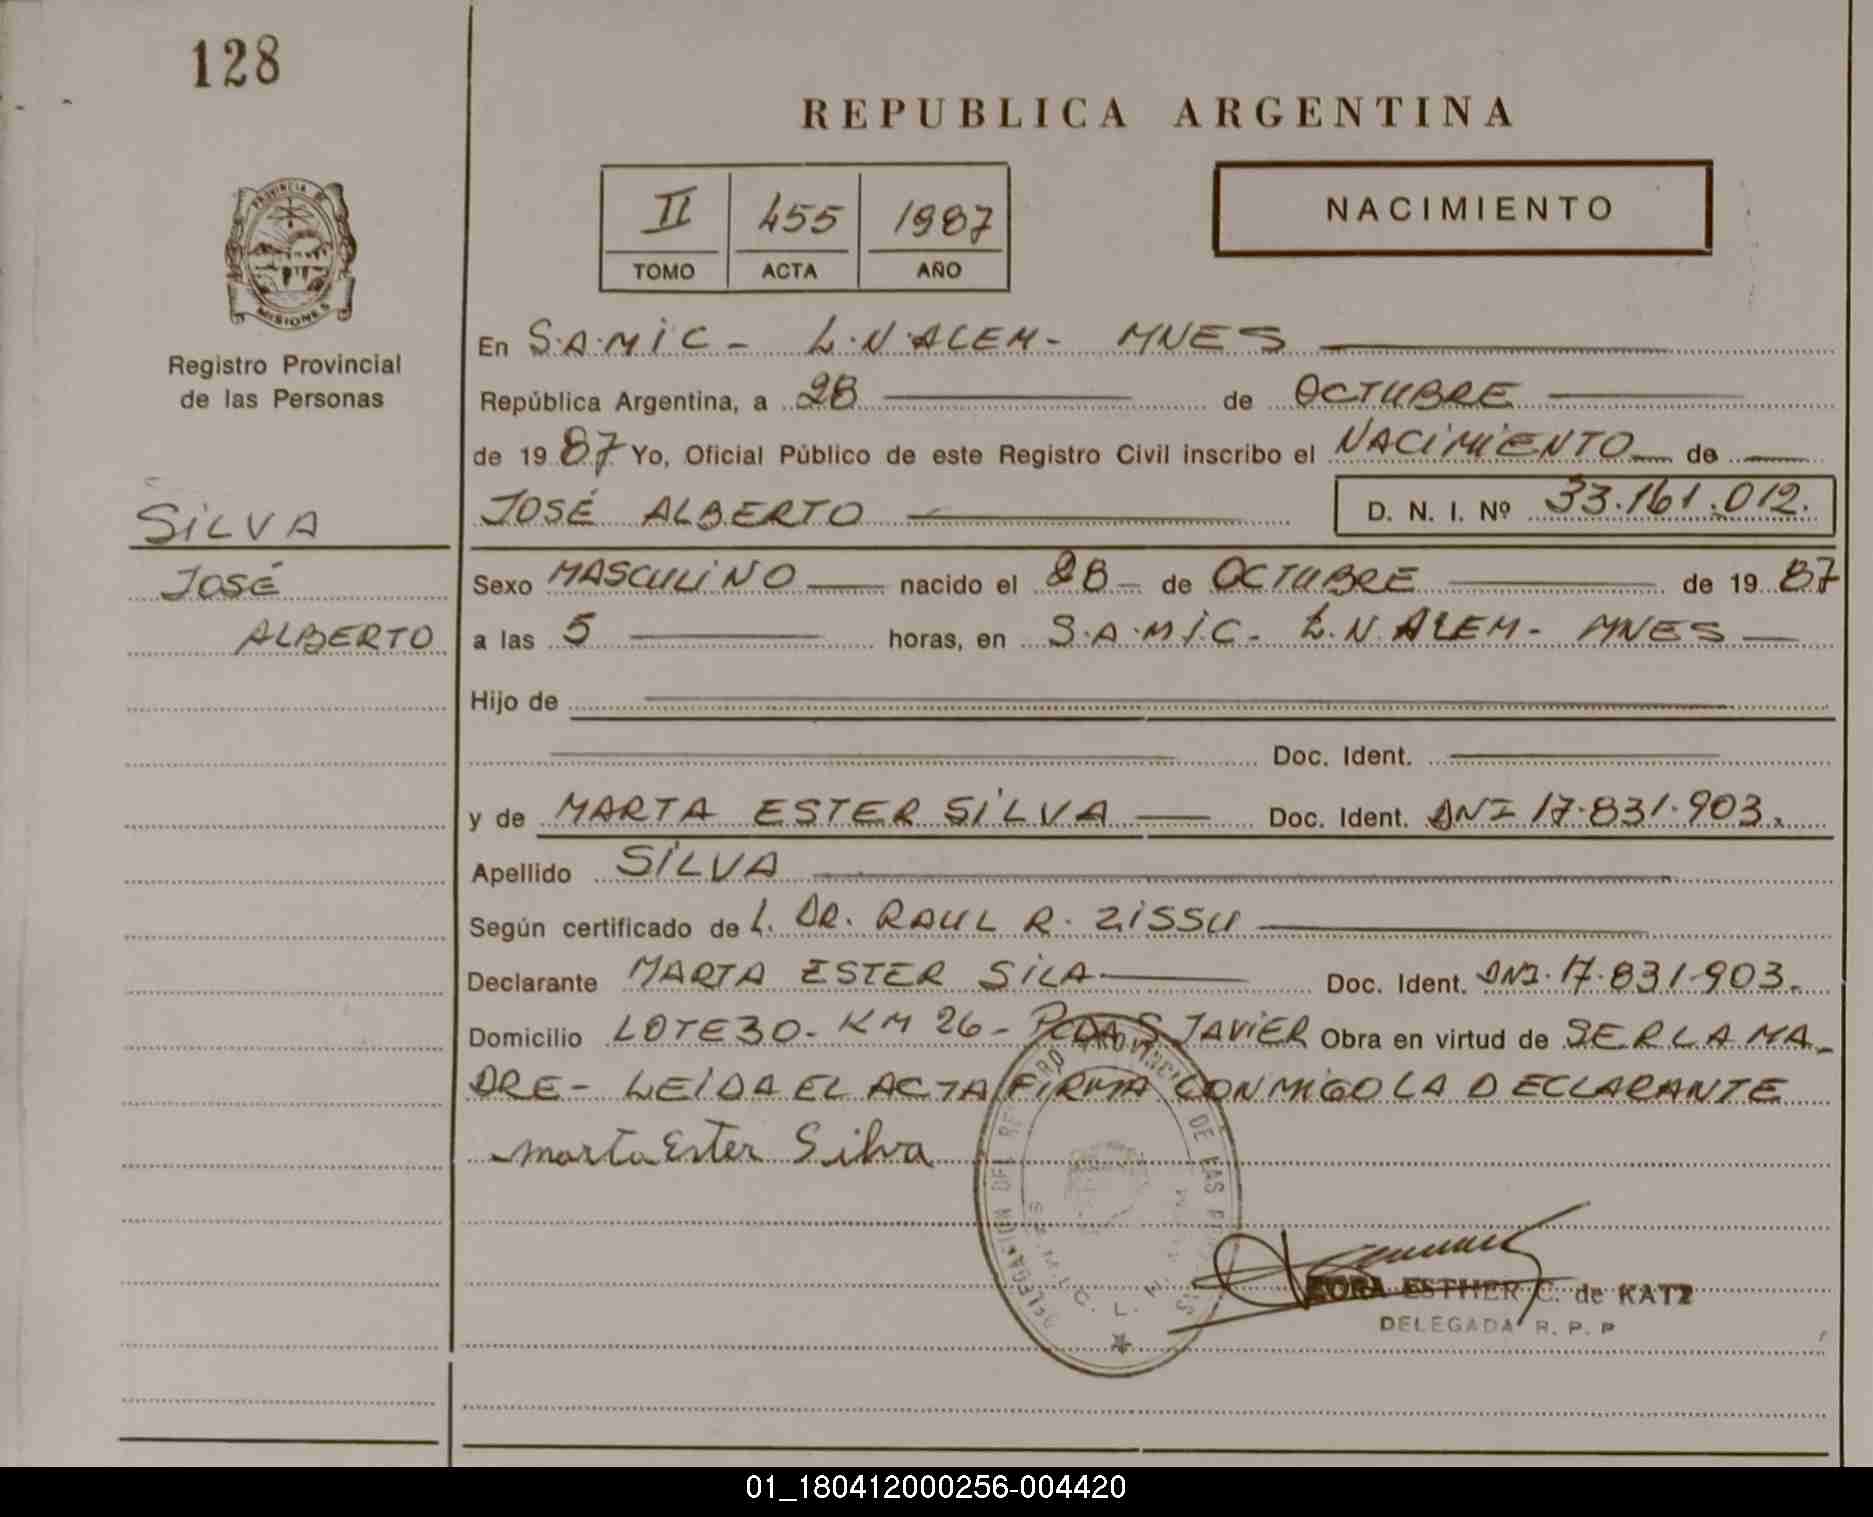 128
REPUBLICA ARGENTINA
II 455 1987
TOMO ACTA AÑO
NACIMIENTO
PROVINCIA DE
MISIONES
Registro Provincial
de las Personas
En S.A.M.I.C - L.N.ALEM - MNES
República Argentina, a 28 de OCTUBRE
de 1987 Yo, Oficial Público de este Registro Civil inscribo el NACIMIENTO de
SILVA
JOSÉ ALBERTO D. N. I. Nº 33.161.012.
JOSÉ
ALBERTO
Sexo MASCULINO nacido el 28 de OCTUBRE de 1987
a las 5 horas, en S.A.M.I.C - L.N.ALEM - MNES
Hijo de
Doc. Ident.
y de MARTA ESTER SILVA Doc. Ident. DNI 17.831.903.
Apellido SILVA
Según certificado de L. DR. RAUL R. ZISSU
Declarante MARTA ESTER SILA Doc. Ident. DNI. 17.831.903.
Domicilio LOTE 30 - KM 26 - PCDA S. JAVIER Obra en virtud de SER LA MA_
DRE - LEIDA EL ACTA FIRMA CONMIGO LA DECLARANTE
Marta Ester Silva
DELEGACION DEL REGISTRO PROVINCIAL DE LAS
ESTHER C. de KATZ
DELEGADA R. P. P
01_180412000256-004420